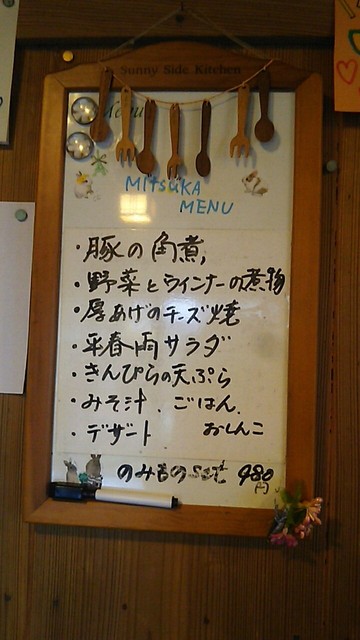 Sunny Side Kitchen
Menu
MITSUKA
MENU
・豚の角煮,
・野菜とウインナーの煮物
・厚あげのチーズ焼
・平春雨サラダ
・きんぴらの天ぷら
・みそ汁、ごはん、
・デザート おしんこ
のみものset 980円